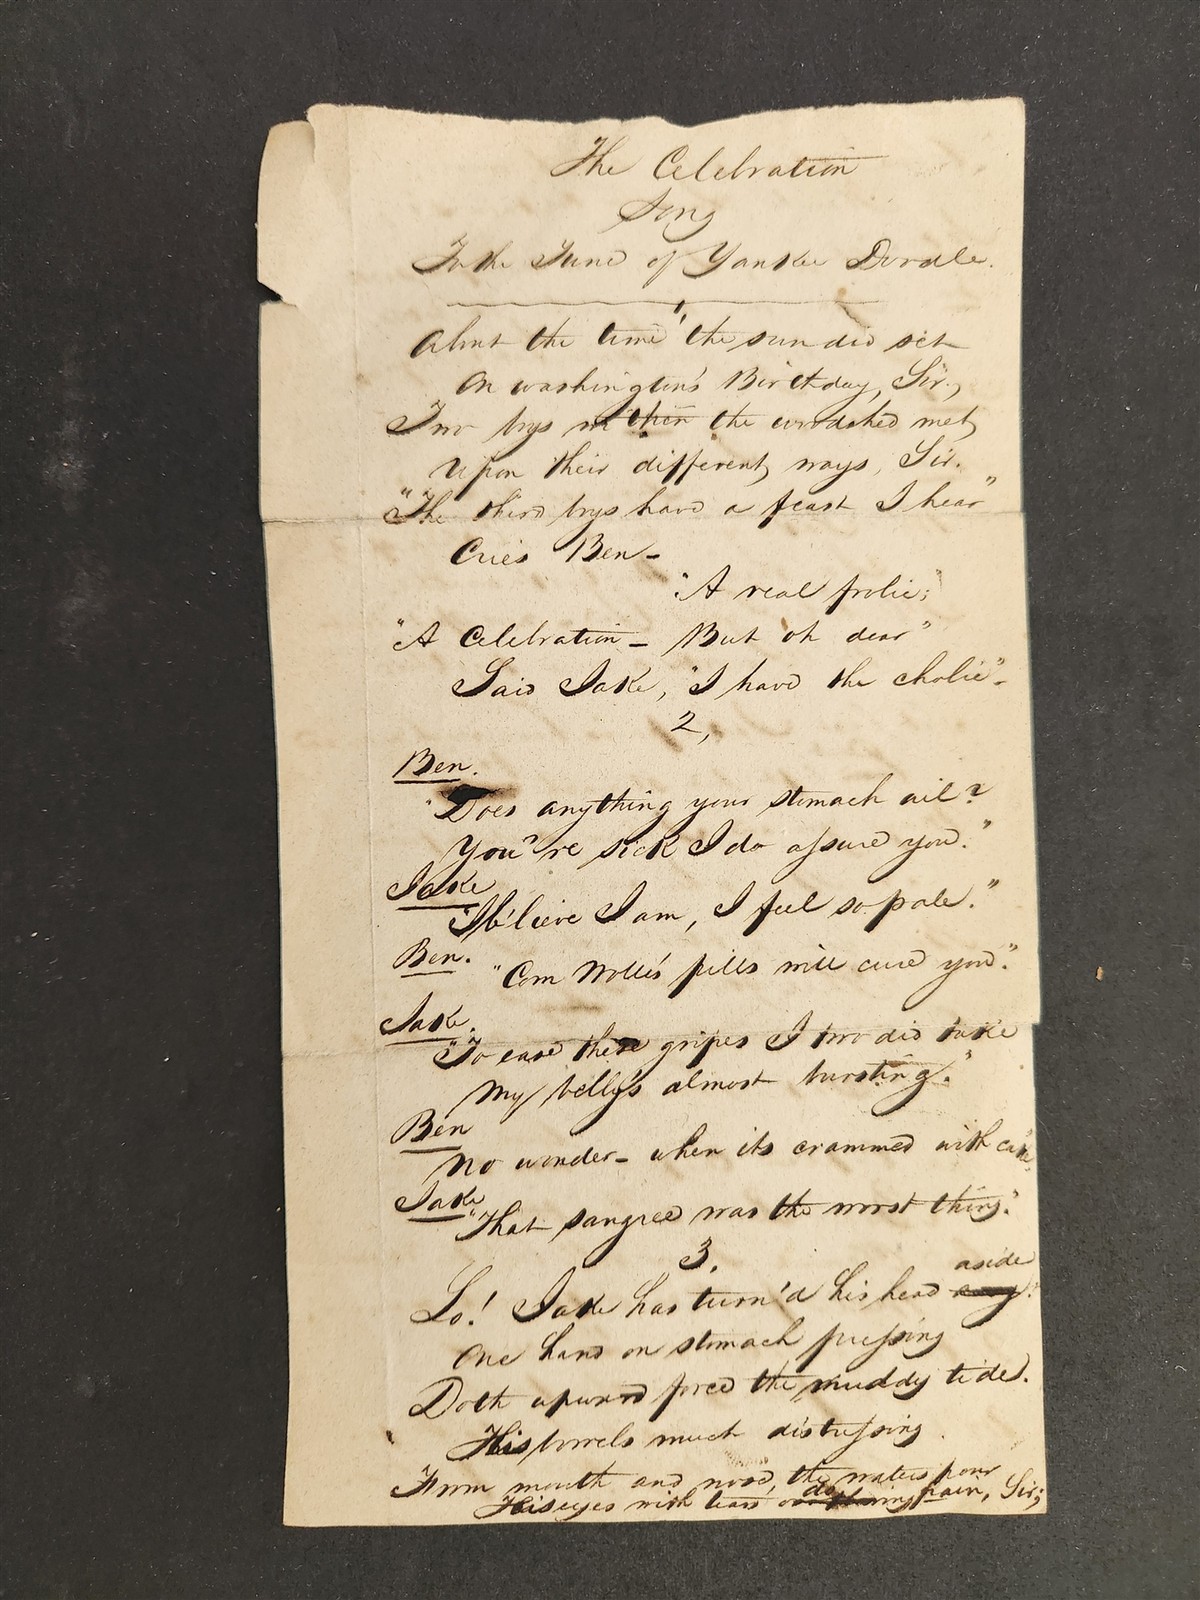 The Celebration
Song
To the Tune of Yankee Doodle.
1
About the time the sun did set
On Washington's Birthday, Sir,
Two boys the woodshed met,
Upon their different ways, Sir.
"The third boys have a feast I hear"
Cries Ben-
"A real frolic;
"A Celebration- But oh dear"
Said Jake, "I have the cholic"-
2,
Ben.
"Does anything your stomach ail?
You're sick I do assure you."
Jake
"I b'lieve I am, I feel so pale."
Ben.
"Com pills will cure you."
Jake.
"To ease these gripes I two did take
My belly's almost bursting."
Ben
No wonder- when its crammed with cake,
Jake
"That sangree was the worst thing."
3.
Lo! Jake has turn'd his head aside
One hand on stomach pressing
Doth upward force the muddy tide.
His bowels much distressing.
From mouth and nose, the waters pour
His eyes with tears do rain, Sir;